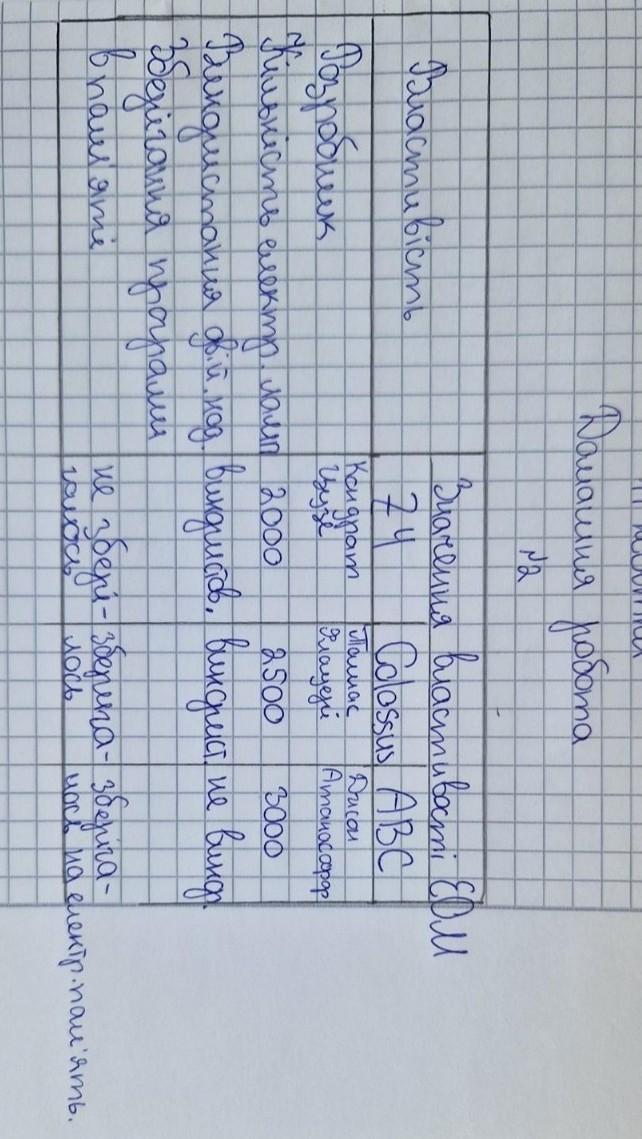 Домашня робота
№2
Властивість
Значення властивості ЕОМ
Z4
Colossus
ABC
Розробник
Кондрат Цузе
Томас Флауері
Джон Атанасофф
Кількість електр. ламп
2000
2500
3000
Використання двій. код.
використов.
використ.
не викор.
Зберігання програми
в пам'яті
не збері-
галось
зберіга-
лось
зберіга-
лось на електр. пам'ять.